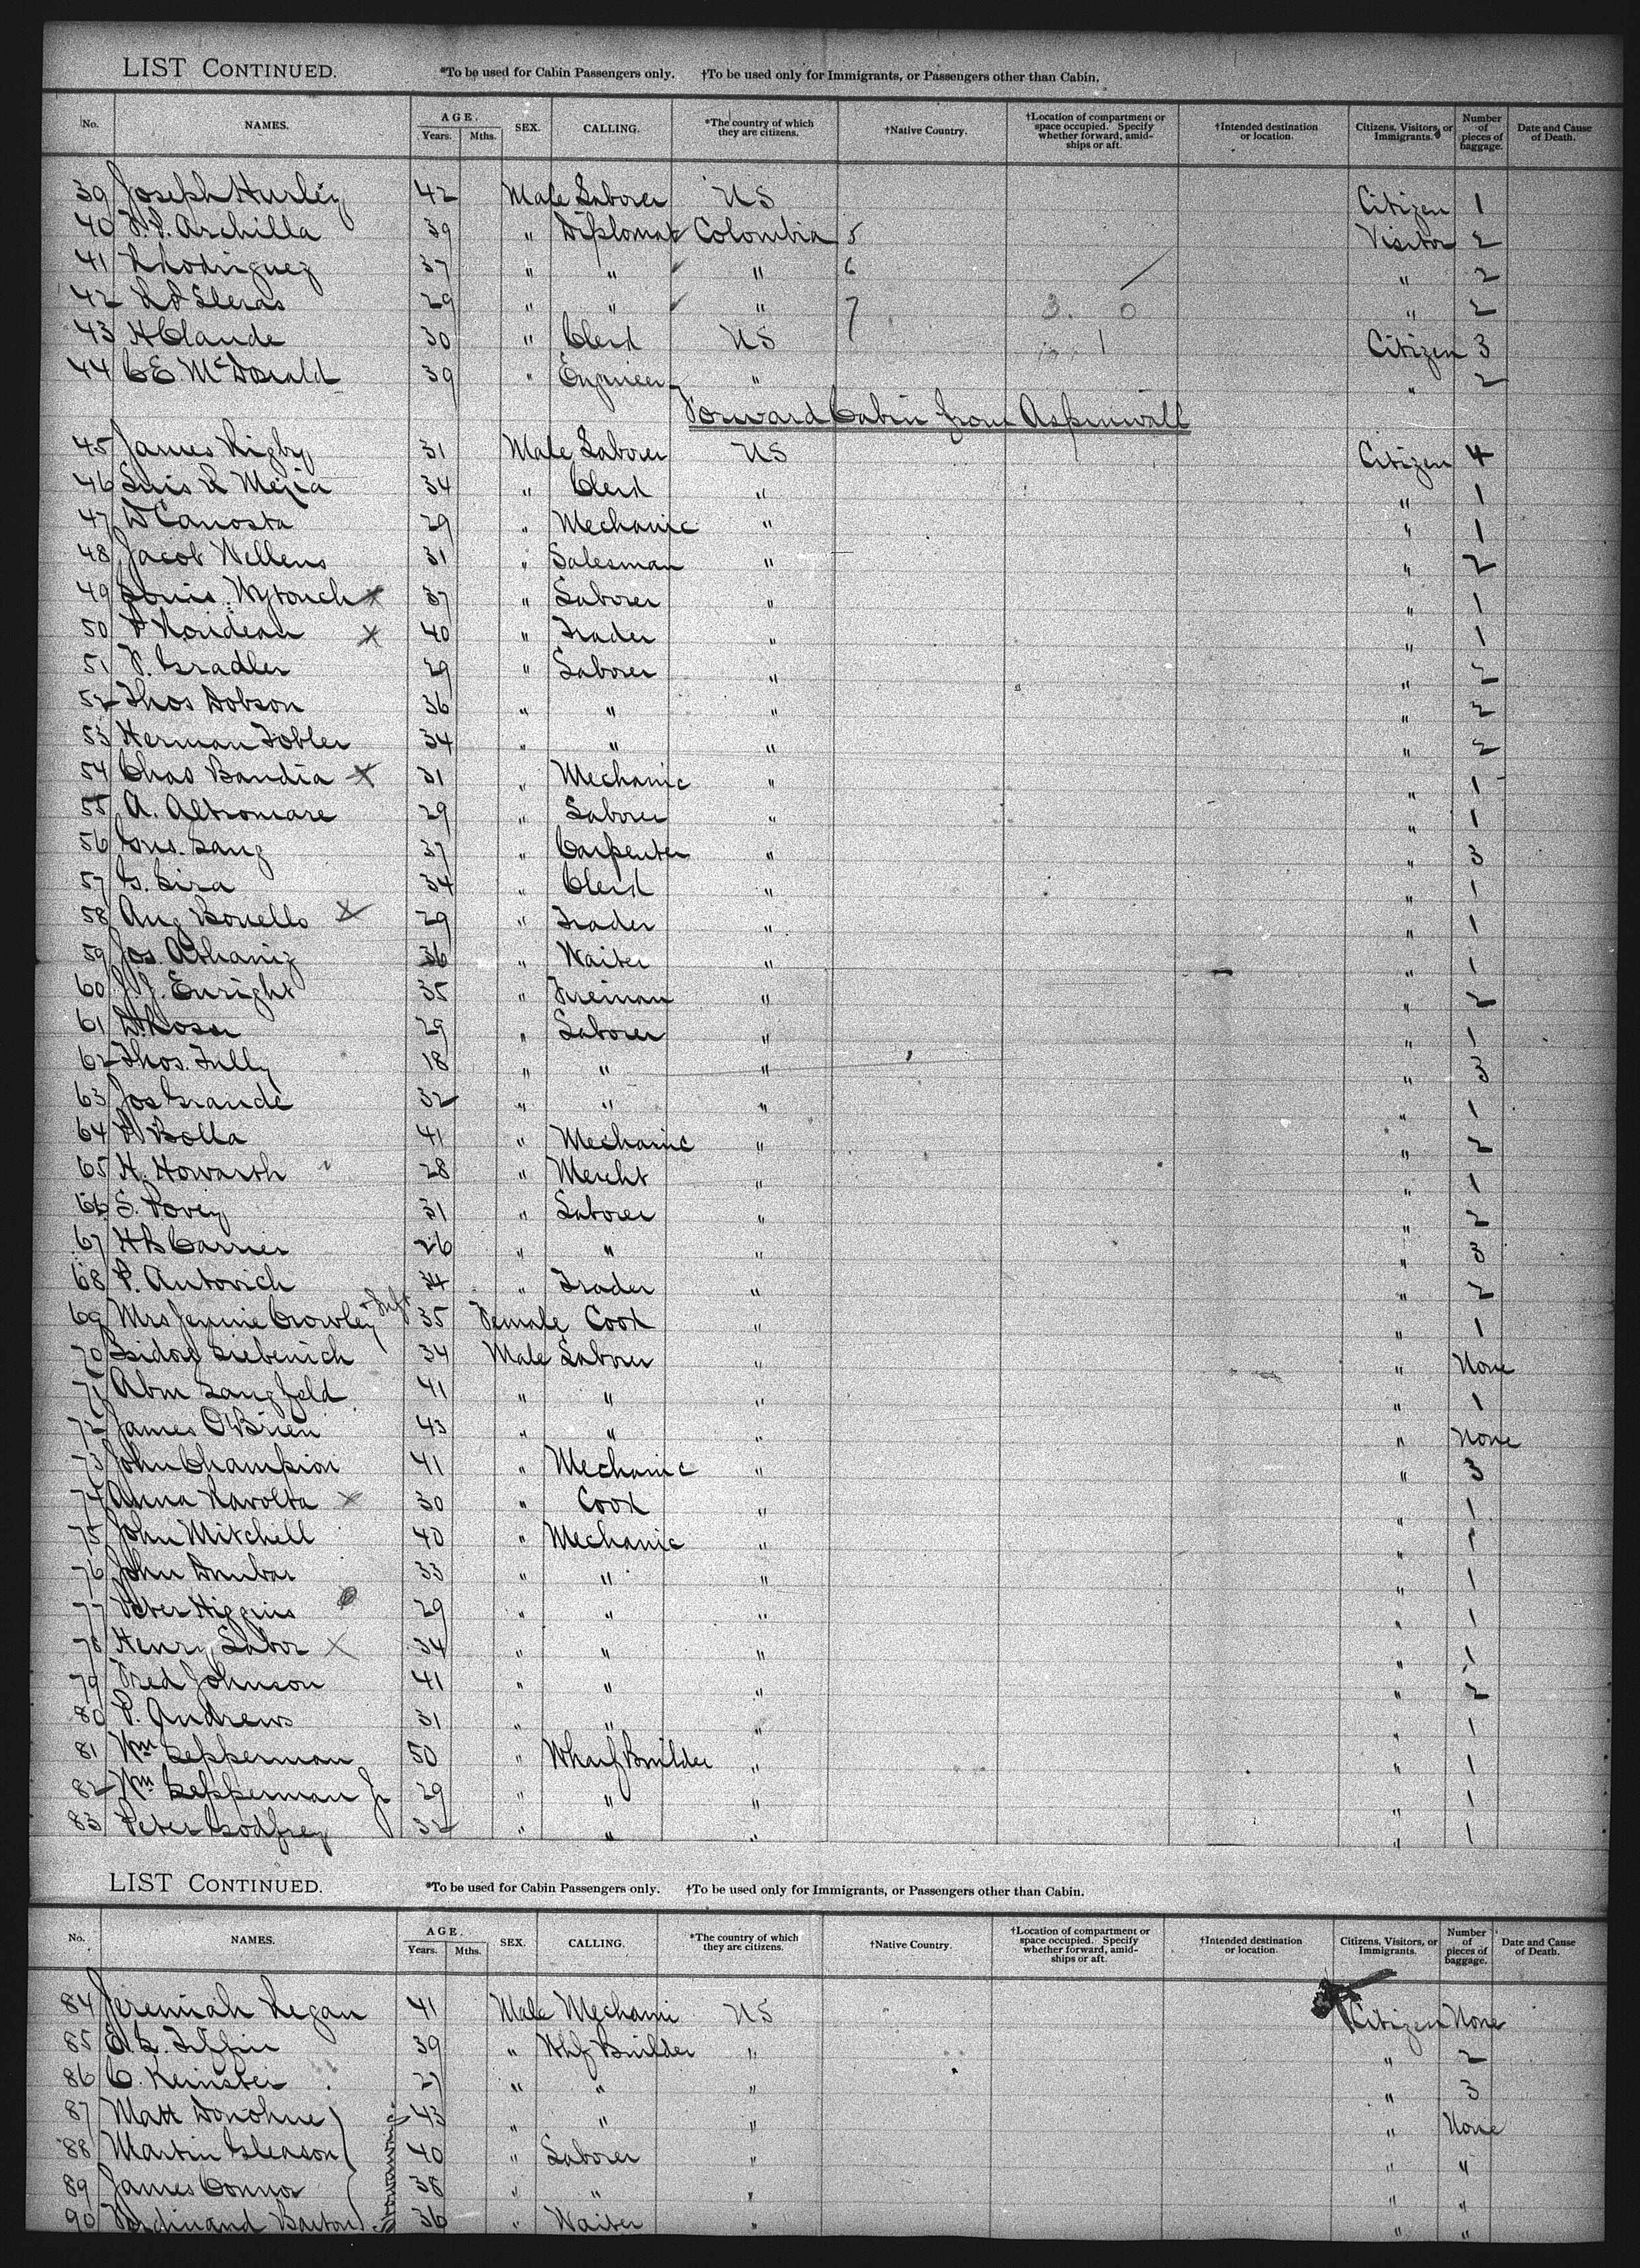 LIST CONTINUED. *To be used for Cabin Passengers only. †To be used only for Immigrants, or Passengers other than Cabin.
No. NAMES. AGE. Years. Mths. SEX. CALLING. *The country of which they are citizens. †Native Country. †Location of compartment or space occupied. Specify whether forward, amidships or aft. †Intended destination or location. Citizens, Visitors, or Immigrants. Number of pieces of baggage. Date and Cause of Death.
39 Joseph Hurley 42 Male Laborer US Citizen 1
40 Archilla 39 " Diplomat Colombia 5 Visitor 2
41 Rhodriguez 37 " " " 6 " 2
42 Lleras 29 " " " 7 " 2
43 H Claude 30 " Clerk US Citizen 3
44 C E McDonald 39 " Engineer " " 2
Forward Cabin from Aspinwall
45 James Rigby 31 Male Laborer US Citizen 4
46 Luis R Mejia 34 " Clerk " " 1
47 D Canosta 29 " Mechanic " " 1
48 Jacob Wellens 31 " Salesman " " 2
49 Louis Wytouch x 37 " Laborer " " 1
50 P Norideau x 40 " Trader " " 1
51 Gradler 29 " Laborer " " 2
52 Thos Dobson 36 " " " " 2
53 Herman Tobler 34 " " " " 2
54 Chas Bandia x 31 " Mechanic " " 1
55 A. Altromare 29 " Laborer " " 1
56 Gus. Lang 37 " Carpenter " " 3
57 G. Lira 34 " Clerk " " 1
58 Aug Bonello x 29 " Trader " " 1
59 Jos. Athaniz 36 " Waiter " " 1
60 J. J. Enright 35 " Fireman " " 2
61 29 " Laborer " " 1
62 Thos. Tully 18 " " " " 3
63 Jos Grande 32 " " " " 1
64 P Bolla 41 " Mechanic " " 2
65 H. Howarth 28 " Mercht " " 1
66 S. Povey 31 " Laborer " " 2
67 H B Carrier 26 " " " " 3
68 P. Antovich 34 " Trader " " 2
69 Mrs Jennie Crowley 35 Female Cook " " 1
70 Isidor Liebenich 34 Male Laborer " " None
71 Abm Langfeld 41 " " " " 1
72 James O'Brien 43 " " " " None
73 John Champion 41 " Mechanic " " 3
74 Anna Ravolta x 30 " Cook " " 1
75 John Mitchell 40 " Mechanic " " 1
76 John Dunbar 33 " " " " 1
77 Peter Higgins 29 " " " " 1
78 Henry Labor x 34 " " " " 1
79 Fred Johnson 41 " " " " 2
80 P. Andrews 31 " " " " 1
81 Wm Lepperman 50 " Wharf Builder " " 1
82 Wm Lepperman Jr 29 " " " " 1
83 Peter Godfrey 32 " " " " 1
LIST CONTINUED. *To be used for Cabin Passengers only. †To be used only for Immigrants, or Passengers other than Cabin.
No. NAMES. AGE. Years. Mths. SEX. CALLING. *The country of which they are citizens. †Native Country. †Location of compartment or space occupied. Specify whether forward, amidships or aft. †Intended destination or location. Citizens, Visitors, or Immigrants. Number of pieces of baggage. Date and Cause of Death.
84 Jeremiah Regan 41 Male Mechanic US Citizen None
85 Tiffin 39 " Whf Builder " " 2
86 C. Reinster 27 " " " " 3
87 Matt Donohue 43 " " " " None
88 Martin Gleason 40 " Laborer " " "
89 James Connor 38 " " " " "
90 Ferdinand Barton 36 " Waiter " " "